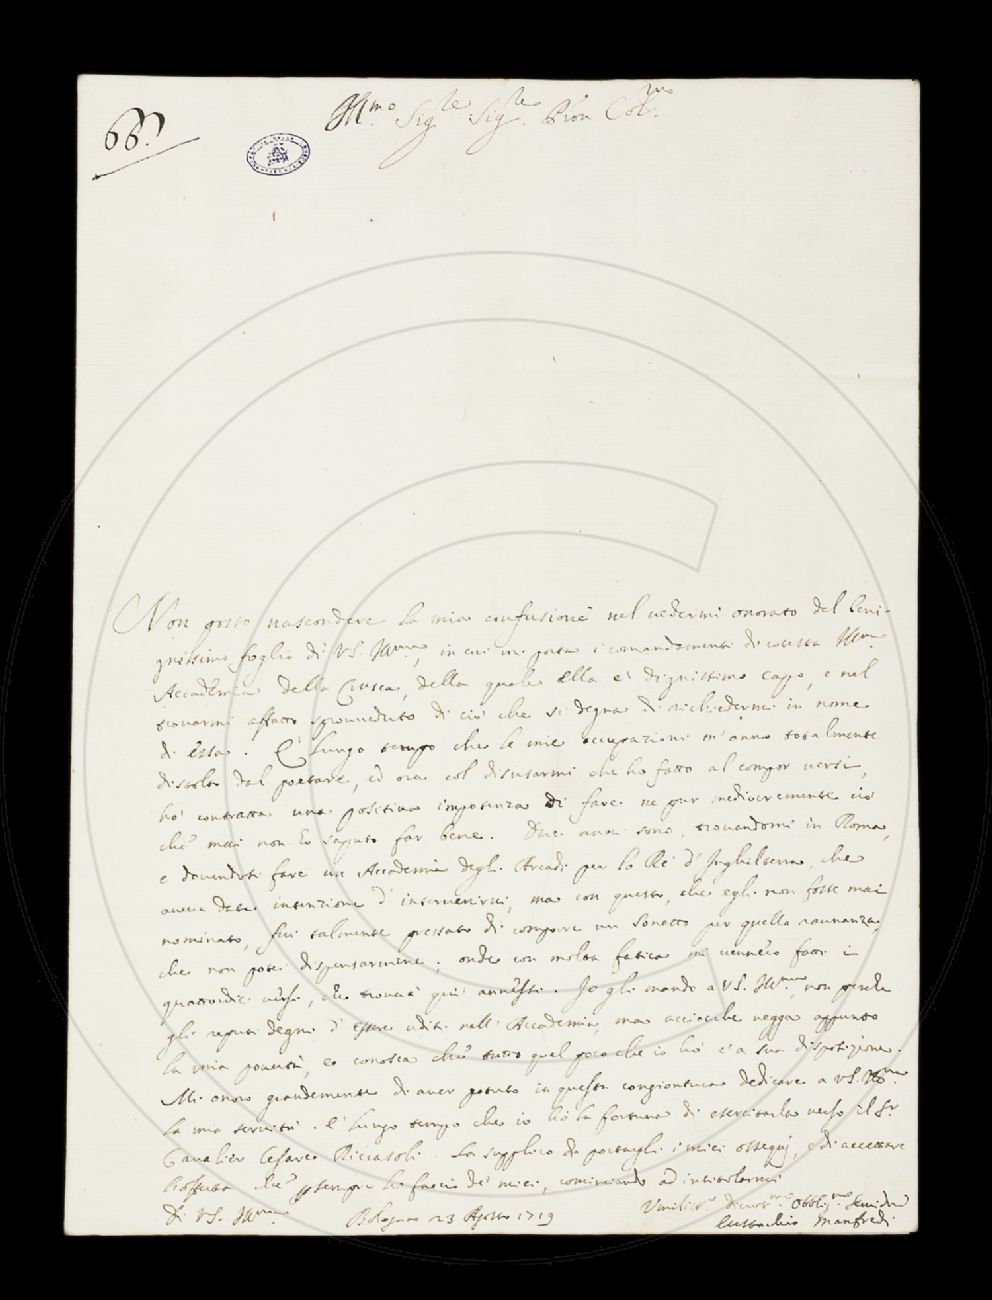 66.
Ill.mo Sig.re Sig.re Pron Col.mo
Non posso nascondere la mia confusione nel vedermi onorato del beni-
gnissimo foglio di VS. Ill.ma, in cui mi porta i comandamenti di cotesta Ill.ma
Accademia della Crusca, della quale Ella è dignissimo capo, e nel
trovarmi affatto sprovveduto di ciò che si degna di richiedermi in nome
di essa. È lungo tempo che le mie occupazioni m'anno totalmente
distolto dal poetare, ed ora col disusarmi che ho fatto al compor versi,
hò contratta una positiva impotenza di fare ne pur mediocremente ciò
che mai non hò saputo far bene. Due anni sono, trovandomi in Roma,
e dovendosi fare un Accademia degli Arcadi per lo Rè d'Inghilterra, che
aveva data intenzione d'intervenirvi, ma con questo, che egli non fosse mai
nominato, fui talmente pressato di comporre un Sonetto per quella raunanza,
che non potei dispensarmene; onde con molta fatica mi vennero fatti i
quattordici versi, che troverà quì annessi. Io gli mando a VS. Ill.ma, non perche
gli reputi degni d'essere uditi nell'Accademia, ma acciocche vegga appunto
la mia povertà, e conosca che tutto quel poco che io hò è a sua disposizione.
Mi onoro grandemente di aver potuto in questa congiontura dedicare a VS. Ill.ma
la mia servitù. È lungo tempo che io hò la fortuna di esercitarla verso il Sr
Cavalier Cesare Riccasoli. La supplico di portargli i miei ossequj, e di accettare
l'offerta che per sempre le faccio de' miei, cominciando ad intitolarmi
Di VS. Ill.ma Bologna 23 Agosto 1719 Umiliss.o Divot.mo Obblig.mo Servidre
Eustachio Manfredi